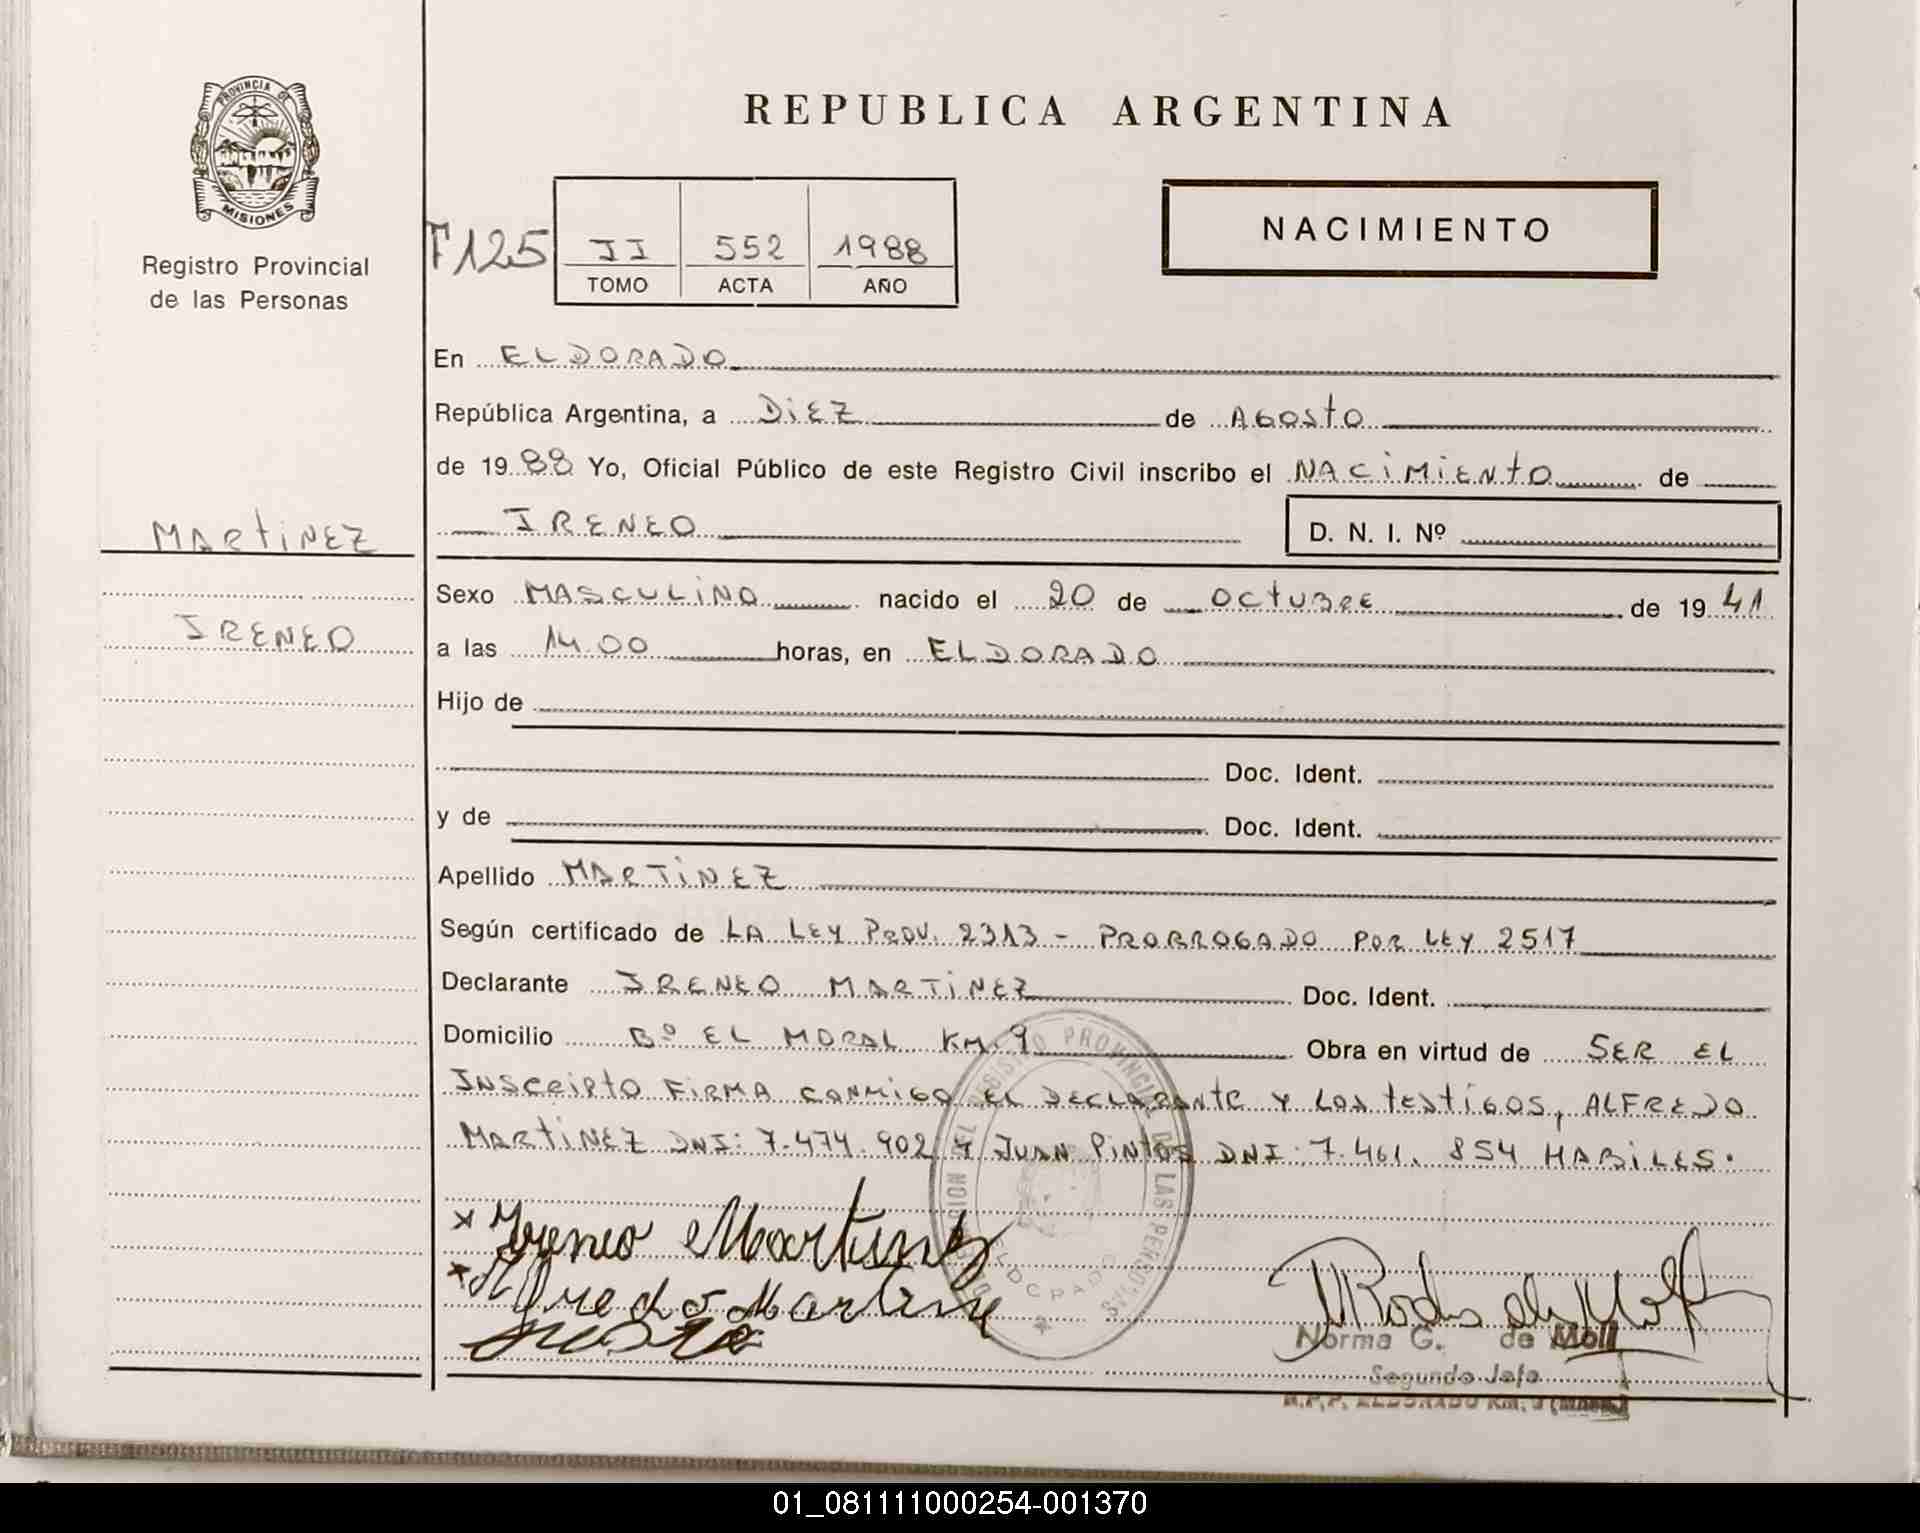 PROVINCIA DE
MISIONES
Registro Provincial
de las Personas
REPUBLICA ARGENTINA
F125
II 552 1988
TOMO ACTA AÑO
NACIMIENTO
En ELDORADO
República Argentina, a DiEZ de AGOSTO
de 1988 Yo, Oficial Público de este Registro Civil inscribo el NACIMIENTO de
IRENEO D. N. I. Nº
MARTINEZ
IRENEO
Sexo MASCULINO nacido el 20 de OCTUBRE de 1941
a las 14.00 horas, en ELDORADO
Hijo de
Doc. Ident.
y de Doc. Ident.
Apellido MARTINEZ
Según certificado de LA LEY PROV. 2313 - PRORROGADO POR LEY 2517
Declarante IRENEO MARTINEZ Doc. Ident.
Domicilio Bº EL MORAL KM. 9 Obra en virtud de SER EL
INSCRIPTO FIRMA CONMIGO EL DECLARANTE Y LOS TESTIGOS, ALFREDO
MARTINEZ DNI: 7.474.902 Y JUAN PINTOS DNI: 7.461.854 HABILES.
x Ireneo Martinez
x Alfredo Martine
Norma G. de Moll
Segundo Jefe
ELDORADO
01_081111000254-001370